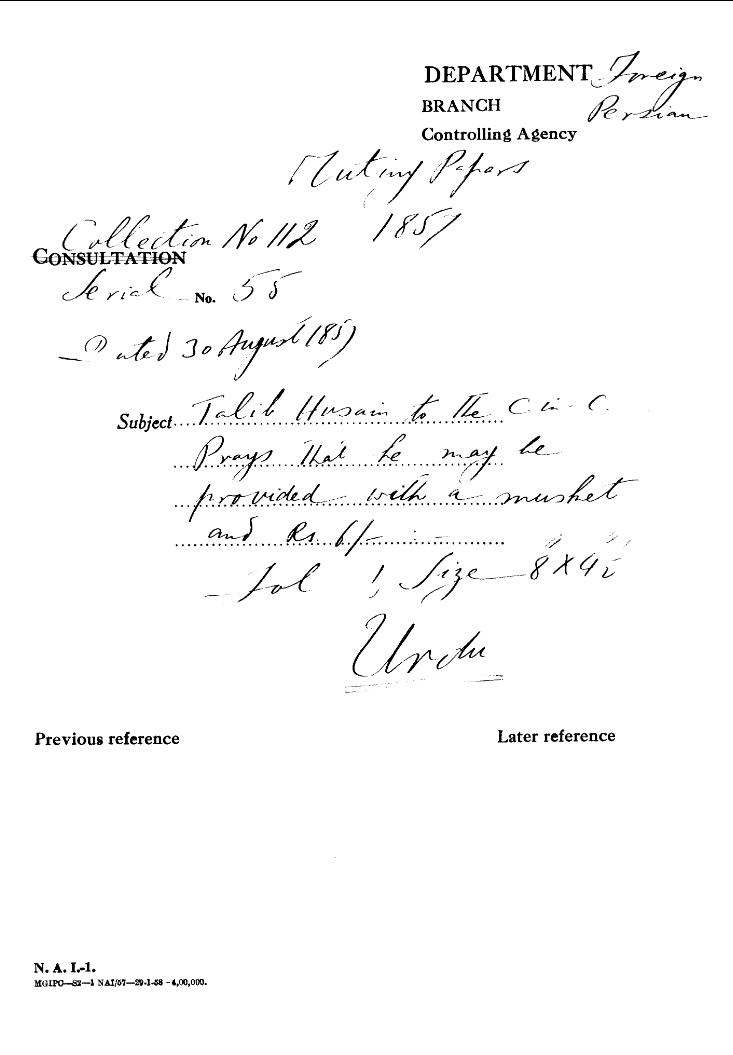 DEPARTMENT Foreign
BRANCH Persian
Controlling Agency
Mutiny Papers
Collection No 112 1857
CONSULTATION
Serial No. 55
Dated 30 August 1857
Subject Talib Husain to the C-in-C.
Prays that he may be
provided with a musket
and Rs 6/-
Fol 1, Size 8"X4½"
Urdu
Previous reference Later reference
N. A. I.-1.
MGIPC—S2—1 NAI/57—29-1-58 -4,00,000.